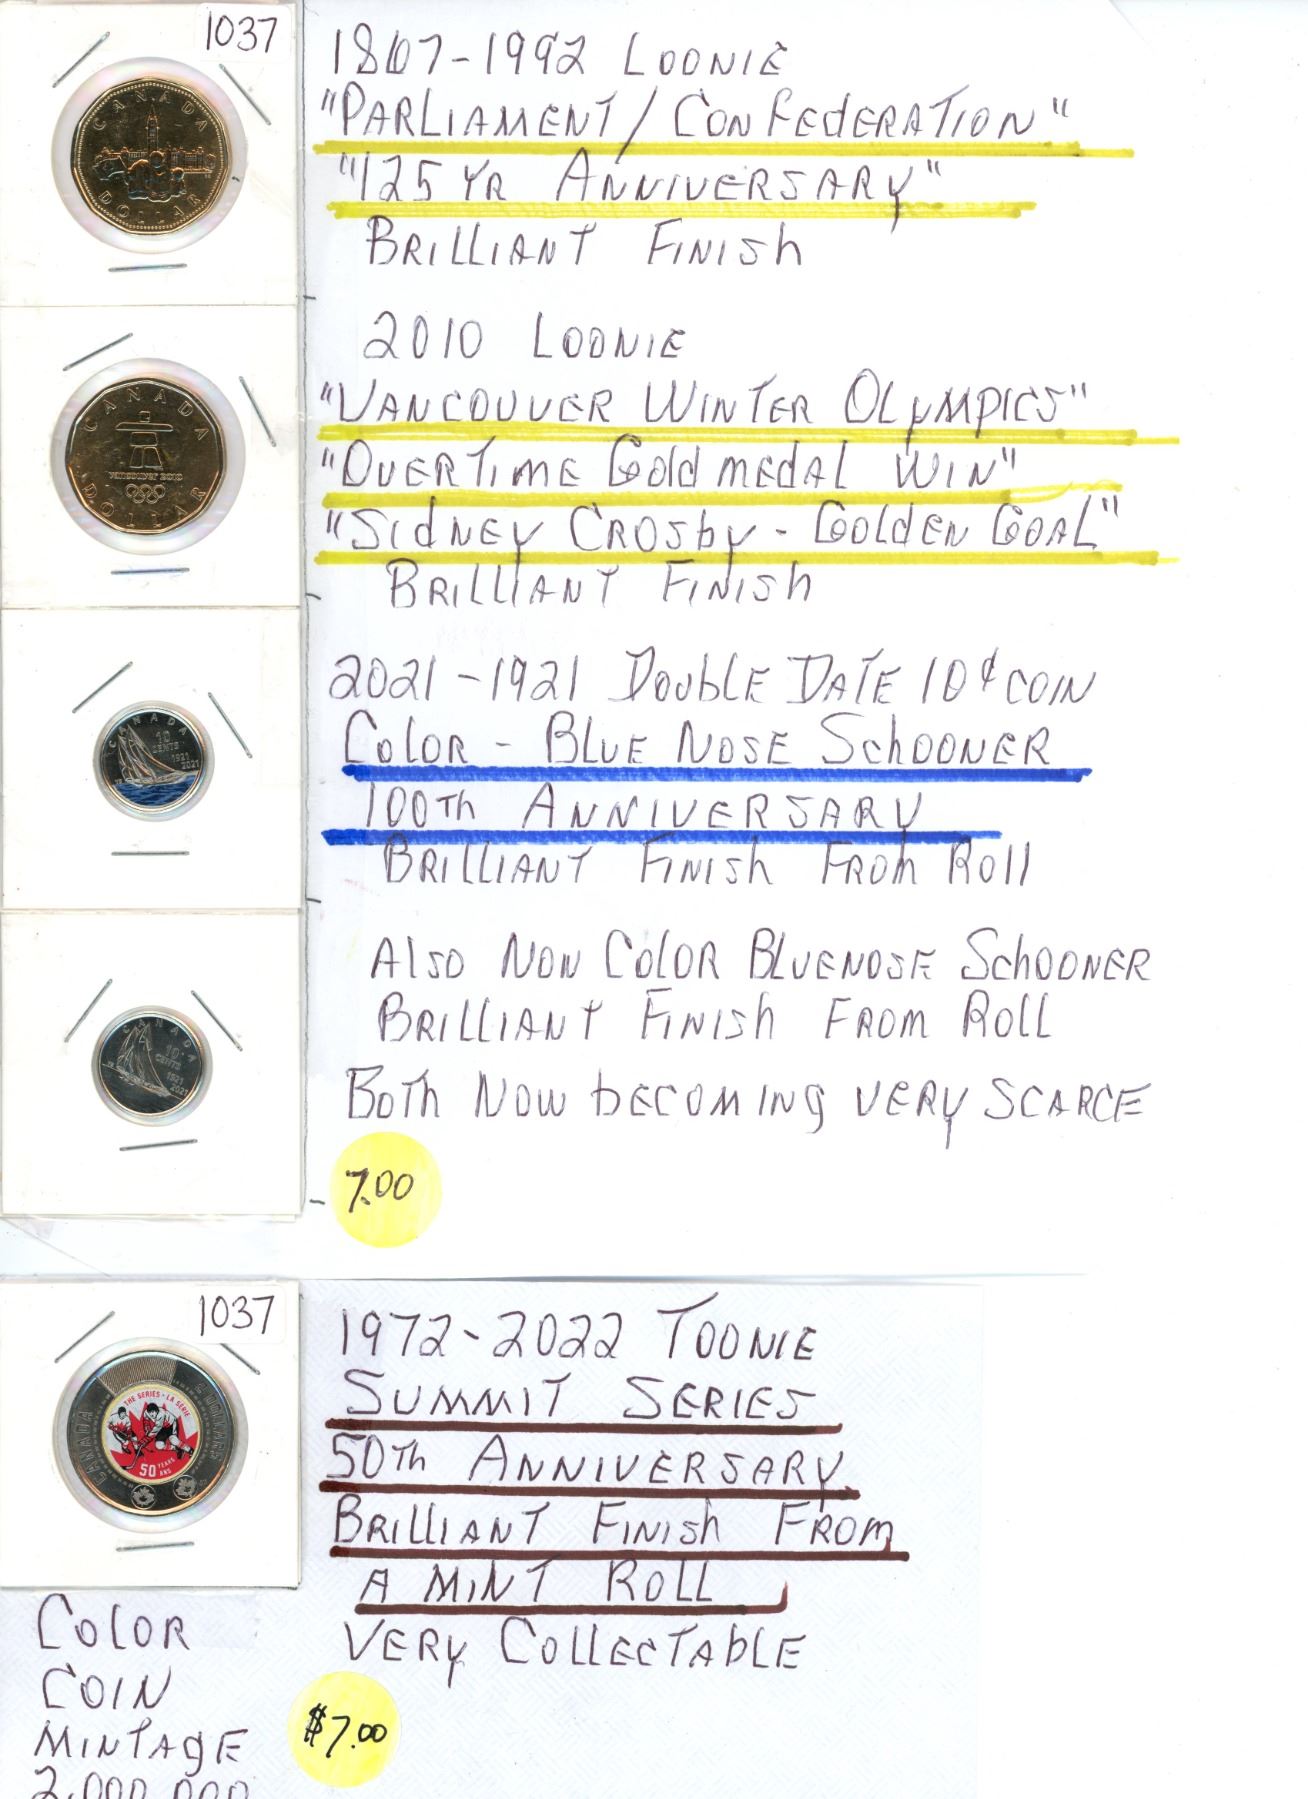 1037
1867-1992 LOONIE
"PARLIAMENT/CONFEDERATION"
"125 YR ANNIVERSARY"
BRILLIANT FINISH
CANADA
DOLLAR
2010 LOONIE
"VANCOUVER WINTER OLYMPICS"
"OVERTIME GOLD MEDAL WIN"
"SIDNEY CROSBY - GOLDEN GOAL"
BRILLIANT FINISH
CANADA
vancouver 2010
DOLLAR
2021-1921 DOUBLE DATE 10¢ COIN
COLOR - BLUE NOSE SCHOONER
100TH ANNIVERSARY
BRILLIANT FINISH FROM ROLL
CANADA
10
CENTS
1921
2021
ALSO NON COLOR BLUENOSE SCHOONER
BRILLIANT FINISH FROM ROLL
BOTH NOW BECOMING VERY SCARCE
CANADA
10
CENTS
1921
2021
7.00
1037
1972-2022 TOONIE
SUMMIT SERIES
50TH ANNIVERSARY
BRILLIANT FINISH FROM
A MINT ROLL
VERY COLLECTABLE
THE SERIES · LA SÉRIE
CANADA
2 DOLLARS
50 YEARS
ANS
COLOR
COIN
MINTAGE
2,000,000
$7.00